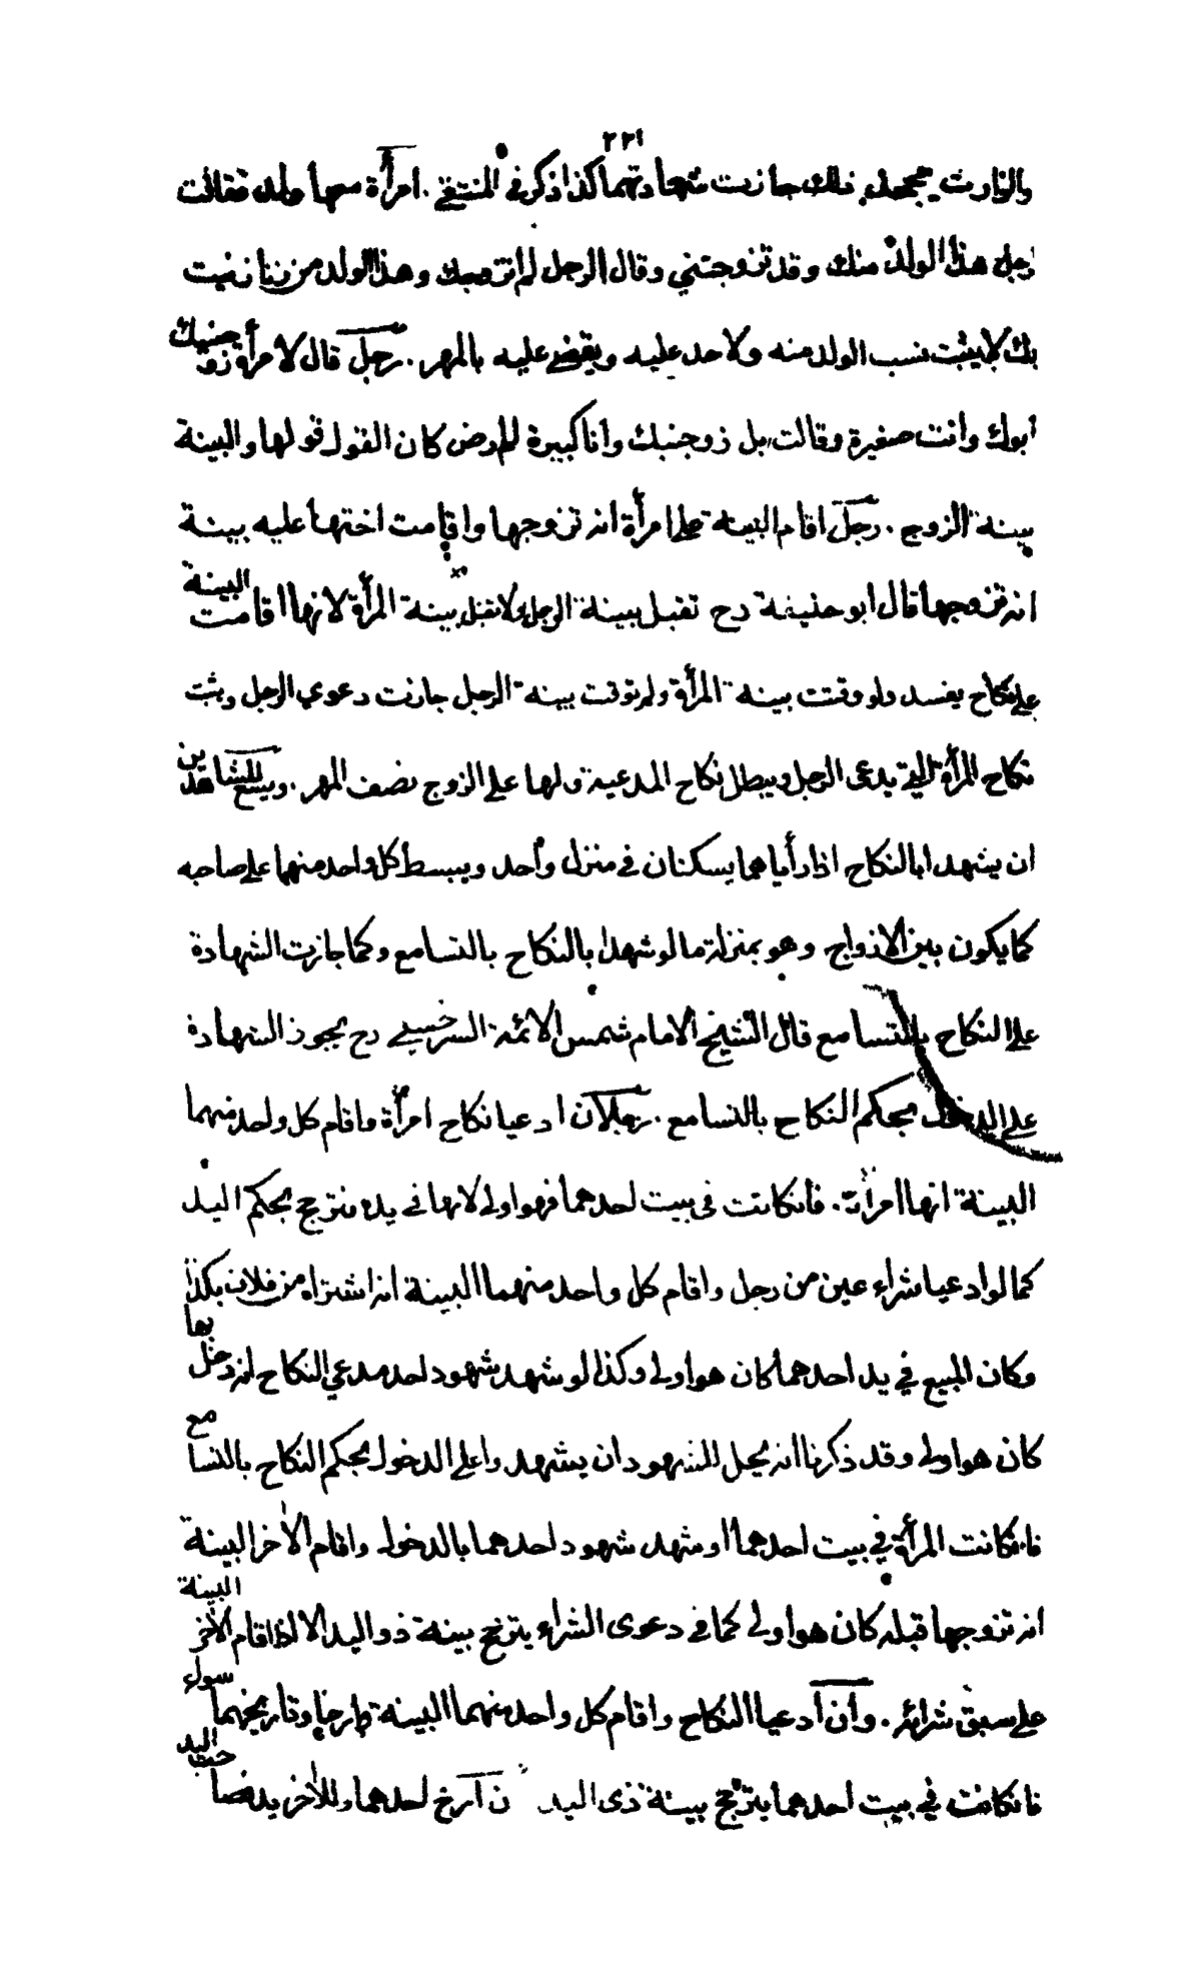 ٢٢١
والوارث يجحد ذلك جازت شهادتهما كذا ذكر في المنتقى . امرأة معها ولد فقالت
رجل هذا الولد منك وقد تزوجتني وقال الرجل لم اتزوجك وهذا الولد من زنا زنيت
بك لا يثبت نسب الولد منه ولا حد عليه ويقضى عليه بالمهر . رجل قال لامرأة زوجنيك
أبوك وانت صغيرة وقالت بل زوجنيك وانا كبيرة لم ارض كان القول قولها والبينة
بينة الزوج . رجل اقام البينة على امرأة انه تزوجها واقامت اختها عليه بينة
انه تزوجها قال ابو حنيفة رح تقبل بينة الرجل ولا تقبل بينة المرأة لانها اقامت البينة
على نكاح يفسد ولو وقتت بينة المرأة ولم توقت بينة الرجل جازت دعوى الرجل ويثبت
نكاح المرأة التي يدعى الرجل ويبطل نكاح المدعية ولها على الزوج نصف المهر . ويسع للشاهدين
ان يشهدا بالنكاح اذا رأياهما يسكنان في منزل واحد ويبسط كل واحد منهما على صاحبه
كما يكون بين الازواج وهو بمنزلة ما لو شهدا بالنكاح بالتسامع وكما جازت الشهادة
على النكاح بالتسامع قال الشيخ الامام شمس الائمة السرخسي رح يجوز الشهادة
على الدخول بحكم النكاح بالتسامع . رجلان ادعيا نكاح امرأة واقام كل واحد منهما
البينة انها امرأته . فانكانت في بيت احدهما فهو اولى لانها في يده فترجح بحكم اليد
كما لو ادعيا شراء عين من رجل واقام كل واحد منهما البينة انه اشتراه من فلان بكذا
وكان المبيع في يد احدهما كان هو اولى وكذا لو شهد شهود احد مدعي النكاح انه دخل بها
كان هو اولى وقد ذكرنا انه يحل للشهود ان يشهدوا على الدخول بحكم النكاح بالتسامع
فانكانت المرأة في بيت احدهما او شهد شهود احدهما بالدخول واقام الاخر البينة
انه تزوجها قبله كان هو اولى كما في دعوى الشراء يترجح بينة ذو اليد الا اذا اقام الاخر البينة
على سبق شرائه . وان ادعيا النكاح واقام كل واحد منهما البينة وارخا وتاريخهما سواء
فانكانت في بيت احدهما يترجح بينة ذى اليد ن ارخ احدهما وللاخر يد فصاحب اليد